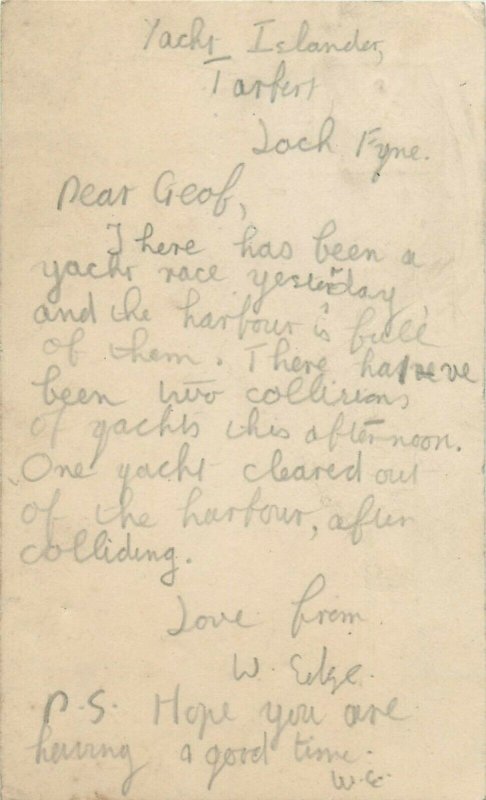 Yacht Islander,
Tarbert
Loch Fyne.
Dear Geof,
There has been a
yacht race yesterday
and the harbour is full
of them. There have
been two collisions
of yachts this afternoon.
One yacht cleared out
of the harbour, after
colliding.
Love from
W. Edge.
P.S. Hope you are
having a good time.
W.E.